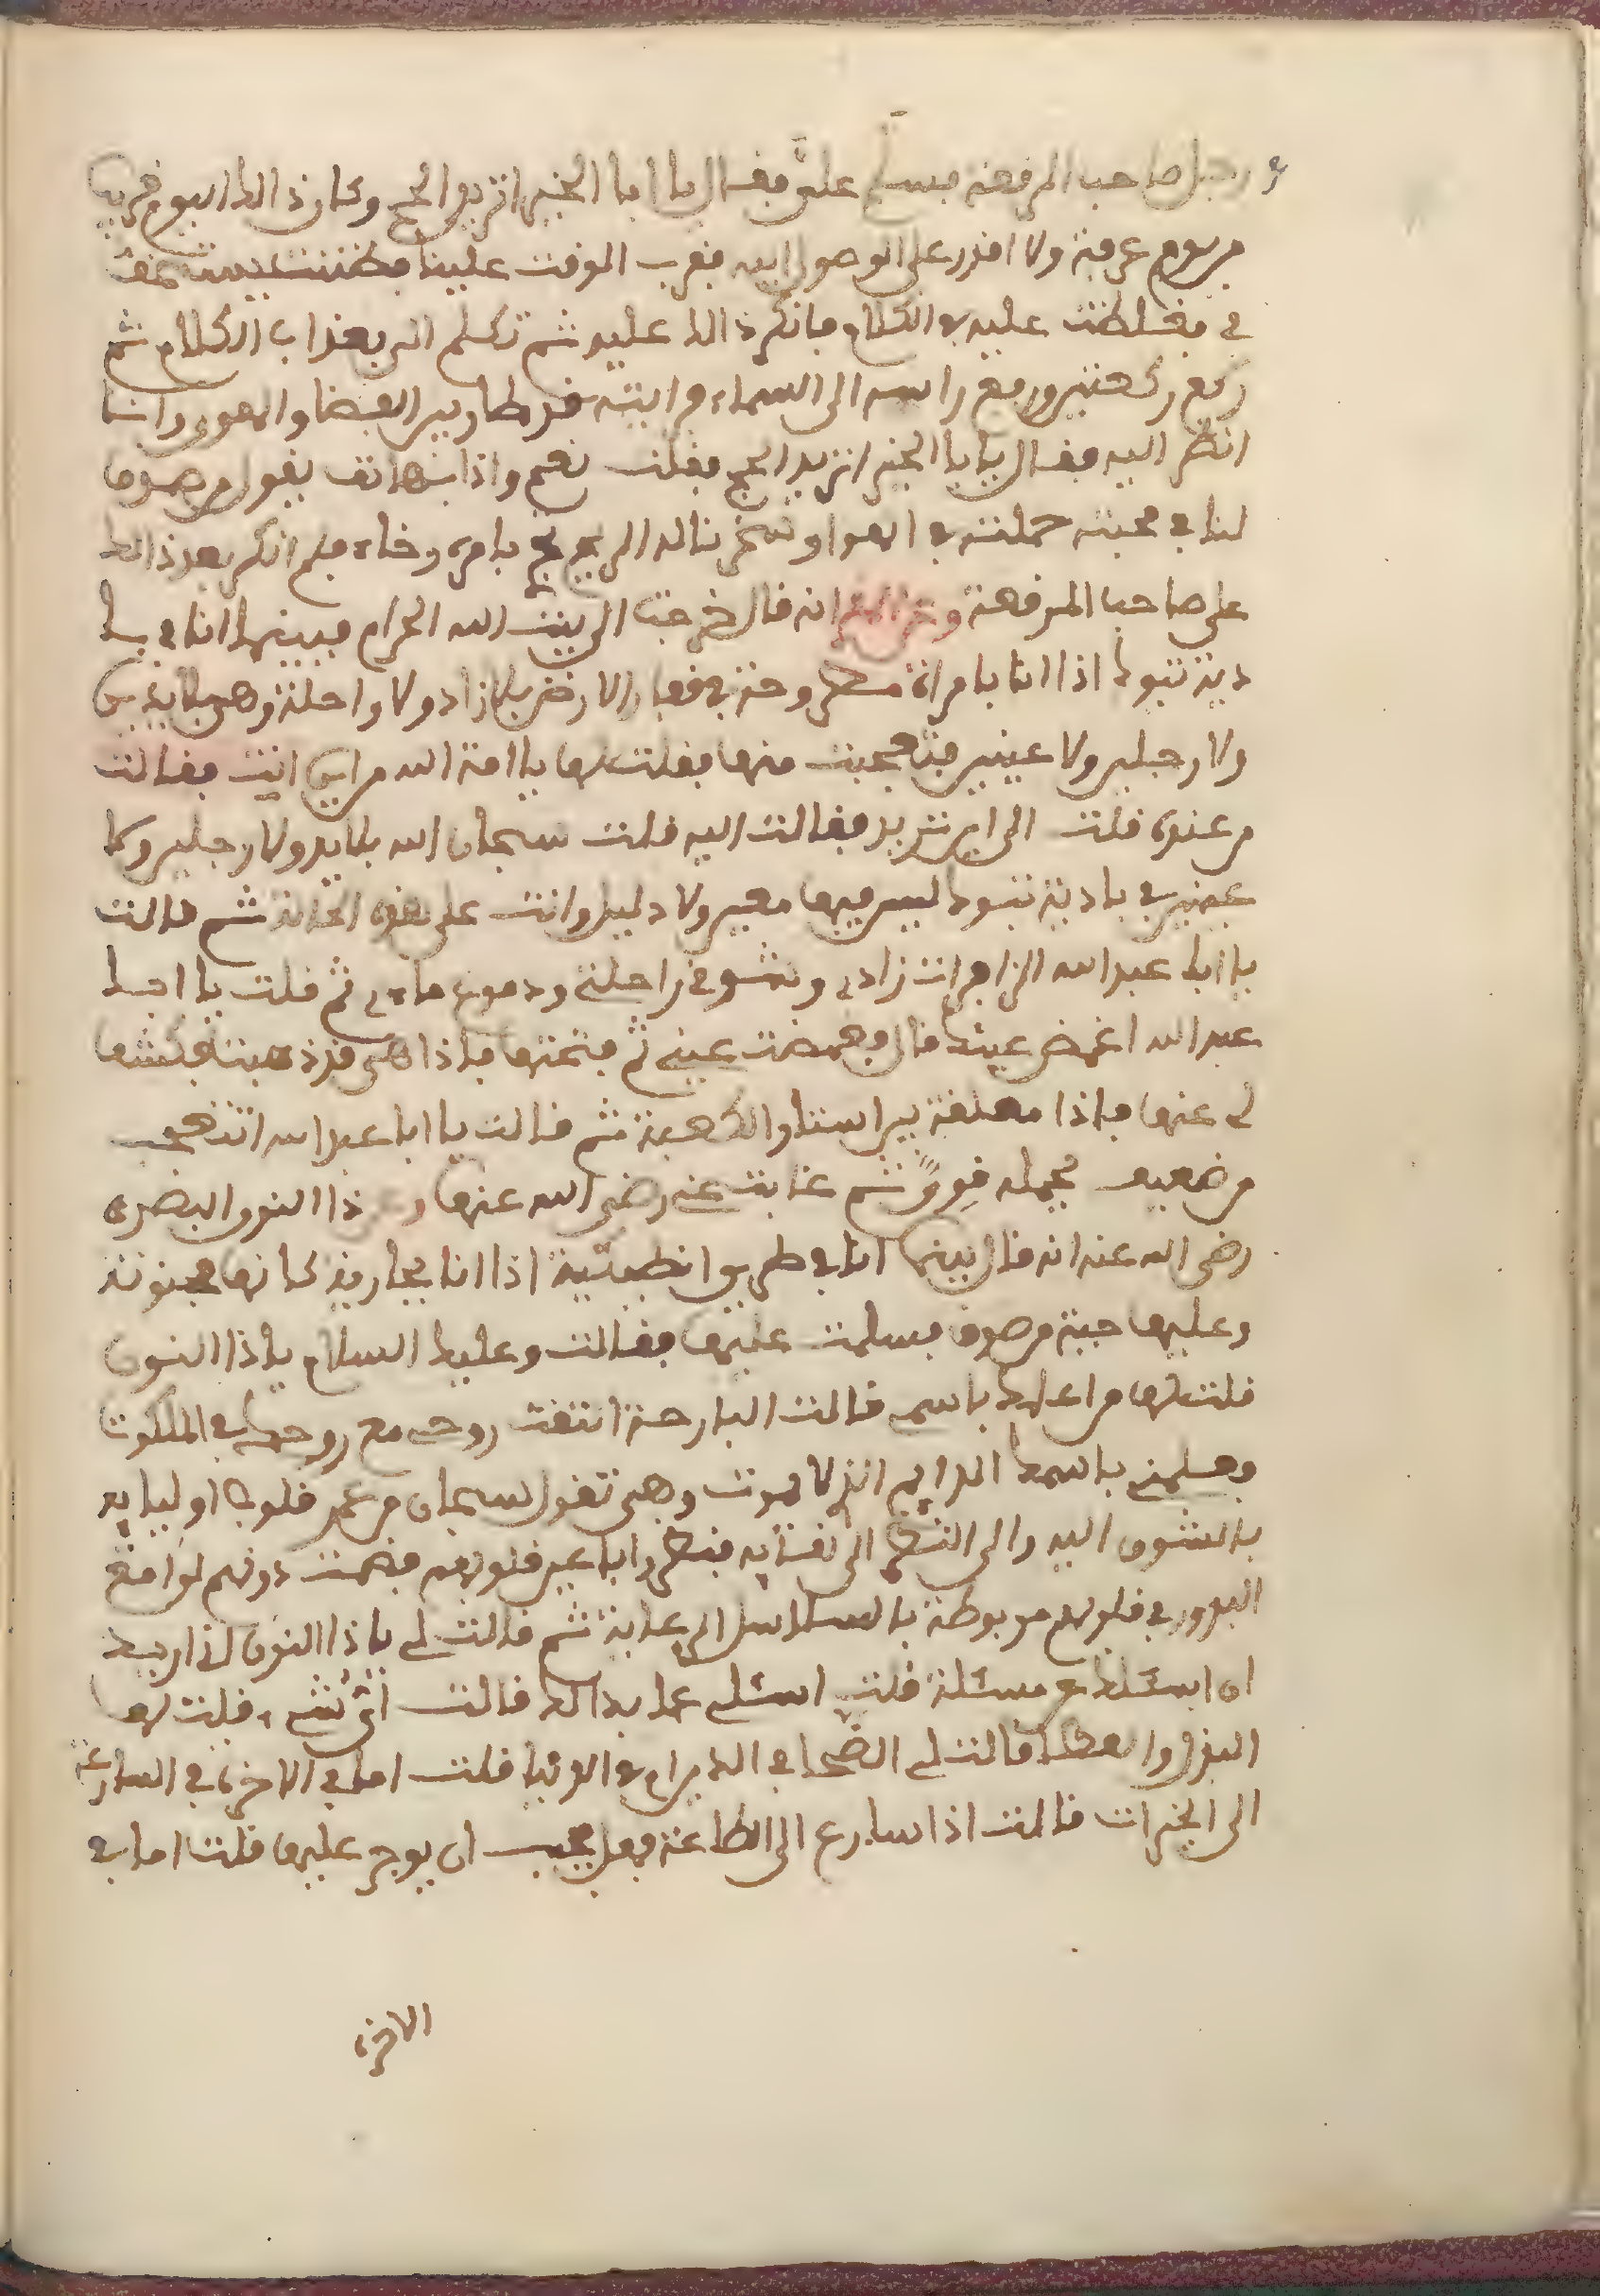 رجل صاحب المرقعة فسلم علي فقال يا ابا الخير اتريد الحج وكان ذالك اليوم قريب
من يوم عرفة ولا اقدر على الوصول اليه فقرب الوقت علينا فظننت
في فغلطت عليه في الكلام فانكر ذالك عليه ثم تكلم الي بعذاب الكلام ثم
ركع ركعتين ورفع راسه الى السماء فرايته قد طار بين الفضا والهوى وانا
انظر اليه فقال يا ابا الخير اتريد الحج فقلت نعم واذا بهاتف يقول من صدق
لنا في محبته حملته في الهوا وسخرنا له الريح تجري بامره رخاء فلم انكر بعد ذالك
على صاحب المرقعة انه قال خرجت الى بيت الله الحرام فبينما انا في با
دية تبوك اذا انا بامراة مطروحة في الارض بلا زاد ولا راحلة وهي بلا يدين
ولا رجلين ولا عينين فتعجبت منها فقلت لها يا امة الله من اين انت فقالت
من عنده قلت الى اين تريد فقالت اليه قلت سبحان الله بلا يد ولا رجلين ولا
عينين في بادية تبوك ليس فيها معين ولا دليل وانت على هذه الحالة ثم قالت
يا ابا عبد الله الزاجرات زادي وتشوقي راحلتي ودموعي ماءي ثم قلت يا ابا
عبد الله اغمض عينك قال فغمضت عيني ثم فتحتها فاذا هي قد ذهبت فكشف
لي عنها فاذا معلقة بين استار الكعبة ثم قالت يا ابا عبد الله اتتعجب
من ضعيف يحمله قوي ثم غابت عني رضي الله عنها و ذا النون البصري
رضي الله عنه انه قال بينما انا في طريق انطكية اذا انا بجارية كانها مجنونة
وعليها جبة من صوف فسلمت عليها فقالت وعليك السلام يا ذا النون
قلت لها من اعلمك باسمي قالت البارحة التقت روحي مع روحك في الملكوت
وعلمني باسمك الدايم الذي لا يموت وهي تقول سبحان من عمر قلوب اوليايه
بالشوق اليه والى النظر الى لقايه فنظروا با عين قلوبهم فضحت دونهم لوامع
البدور في قلوبهم مربوطة بالسلاسل الى ثم قالت لي يا ذا النون اني اريد
ان اسئلك عن مسئلة قلت اسئلي عما بدا لك قالت اي شيء قلت لها
البذل والعطا قالت لي السخا في الدين ام في الدنيا قلت اما في الاخرة في المسارعة
الى الخيرات قالت اذا سارع الى الطاعة فهل يجب ان يوجر عليها قلت اما في
الاخرة